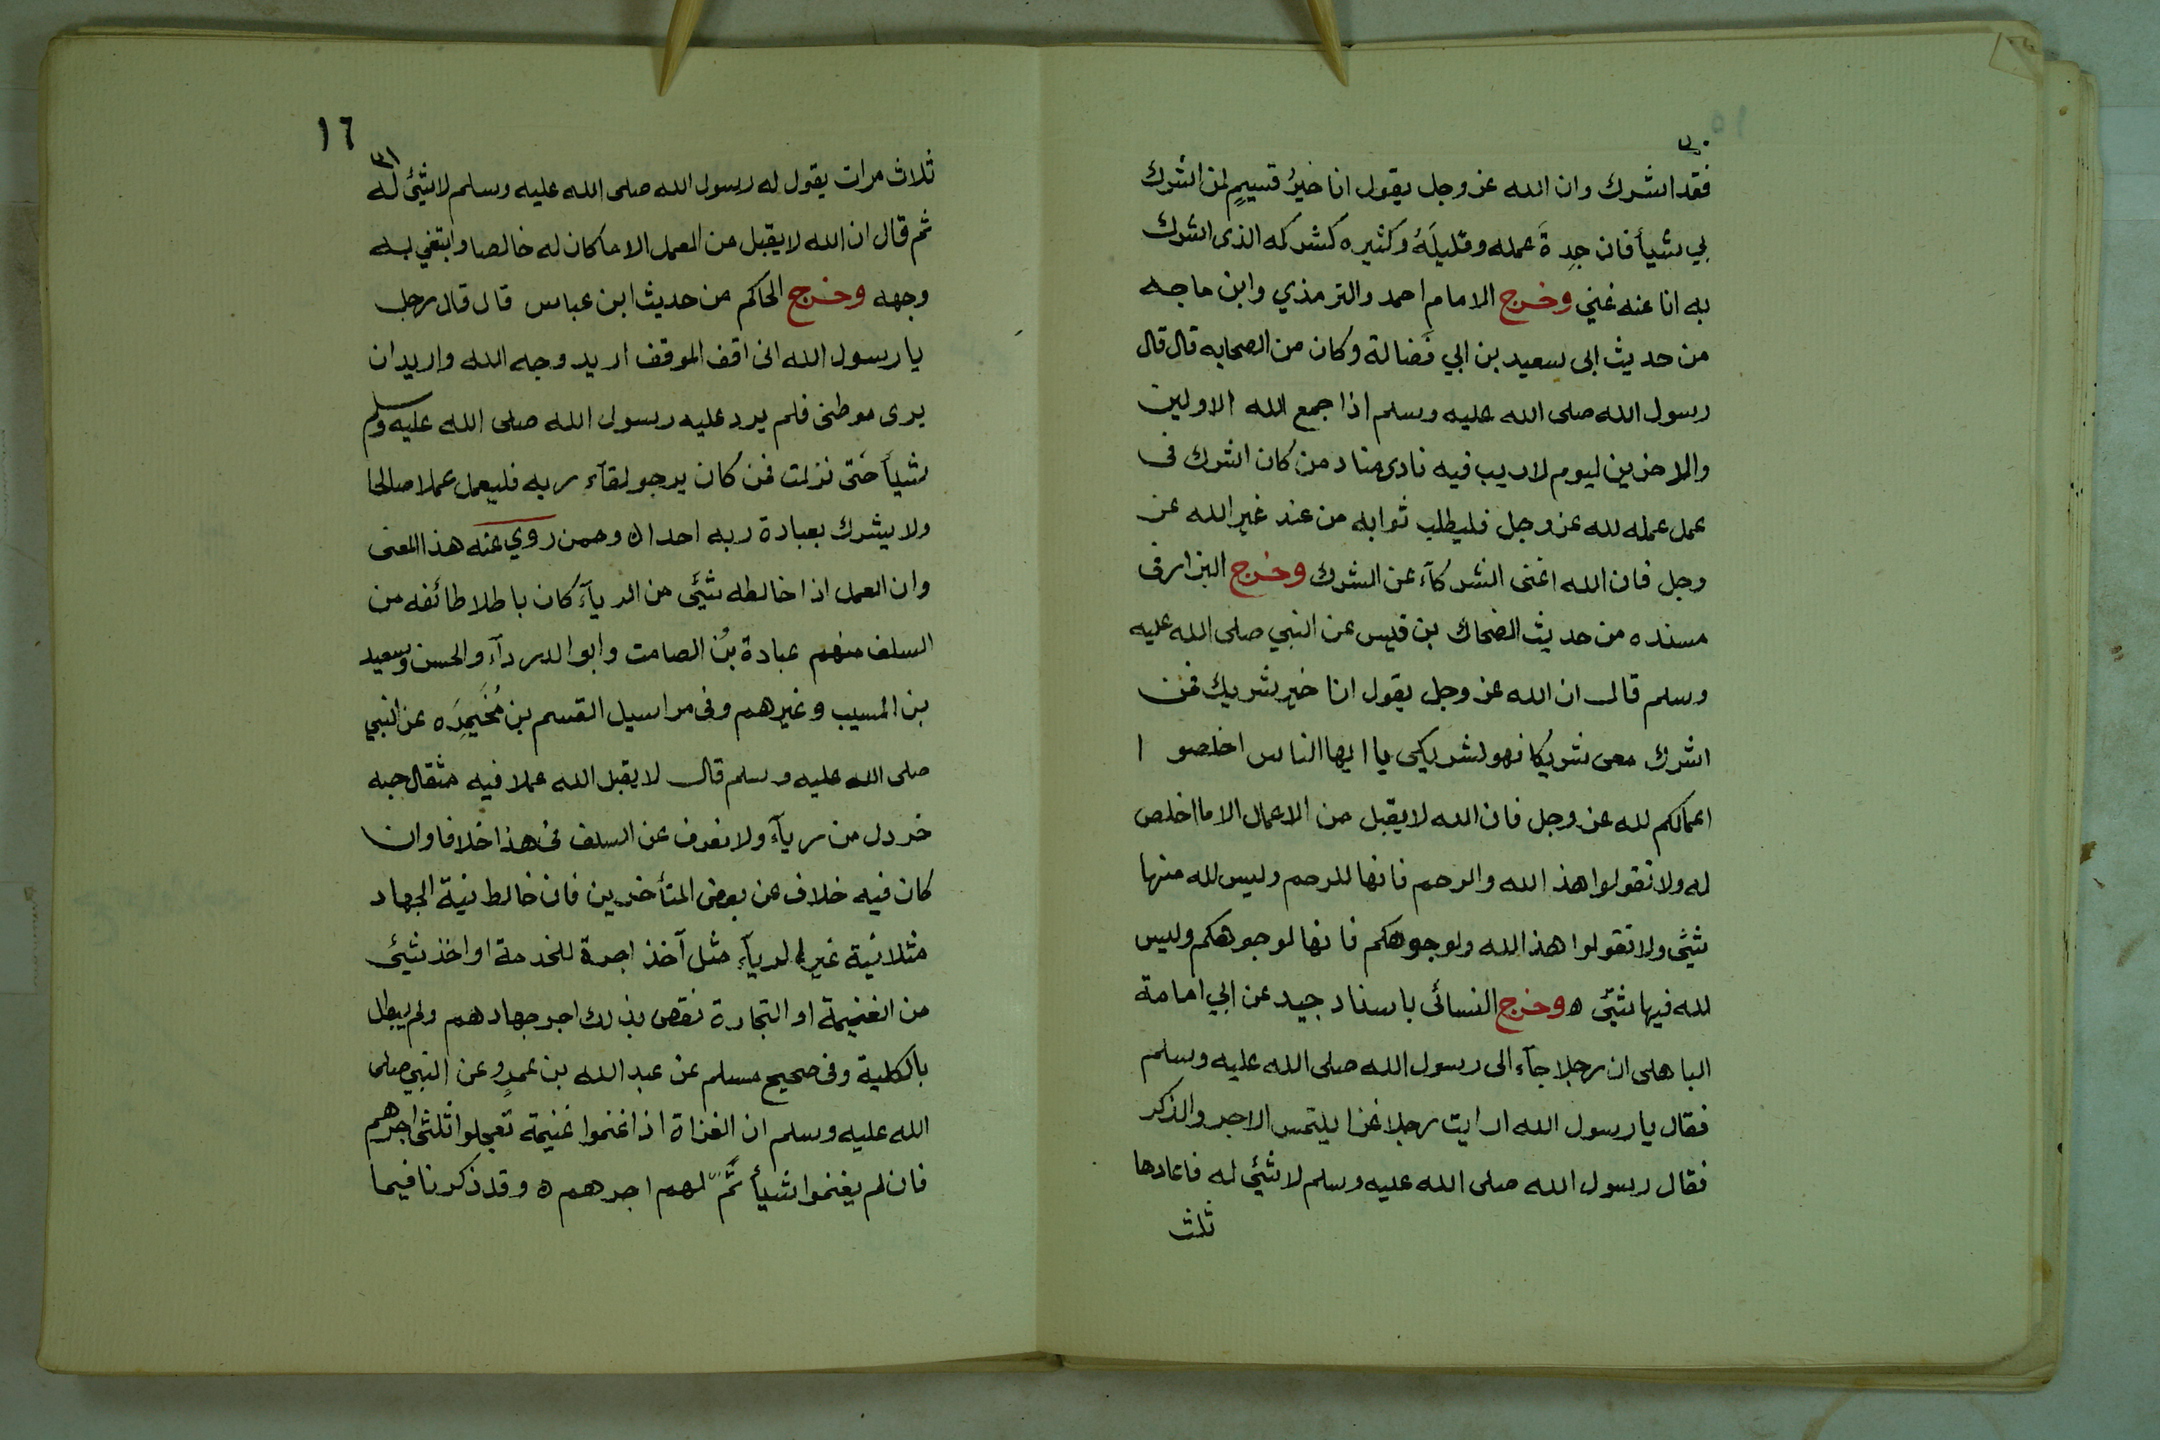 ٣٠
فقد اشرك وان الله عز وجل يقول انا خيرُ قسيمٍ لمن اشرك
بي شيأ فان جِدةَ عمله وقليلَهُ وكثيره كشركه الذى اشرك
به انا عنه غني وخرج الامام احمد والترمذي وابن ماجه
من حديث ابى سعيد بن ابي فَضالة وكان من الصحابه قال قال
رسول الله صلى الله عليه وسلم اذا جمع الله الاولين
والاخرين ليوم لاريب فيه نادى مناد من كان اشرك فى
عمل عمله لله عز وجل فليطلب ثوابه من عند غير الله عز
وجل فان الله اغنى الشركآء عن الشرك وخرج البزار فى
مسنده من حديث الضحاك بن قيس عن النبي صلى الله عليه
وسلم قال ان الله عز وجل يقول انا خير شريك فمن
اشرك معى شريكا فهو لشريكى يا ايها الناس اخلصو ا
اعمالكم لله عز وجل فان الله لا يقبل من الاعمال الا ما اخلص
له ولا تقولوا هذ الله والرحم فانها للرحم وليس لله منها
شئ ولا تقولوا هذ الله ولوجوهكم فانها لوجوهكم وليس
لله فيها شئ ه وخرج النسائى باسناد جيد عن ابي امامة
الباهلى ان رجلا جآء الى رسول الله صلى الله عليه وسلم
فقال يا رسول الله ارايت رجلا غزا يلتمس الاجر والذكر
فقال رسول الله صلى الله عليه وسلم لا شئ له فاعادها
ثلث
١٦
٣١
ثلاث مرات يقول له رسول الله صلى الله عليه وسلم لا شئ له
ثم قال ان الله لا يقبل من العمل الا ما كان له خالصا وابتغي به
وجهه وخرج الحاكم من حديث ابن عباس قال قال رجل
يا رسول الله انى اقف الموقف اريد وجه الله واريد ان
يرى موطنى فلم يرد عليه رسول الله صلى الله عليه وسلم
شيأ حَتى نزلت فمن كان يرجو لقآء ربه فليعمل عملا صالحا
ولا يشرك بعبادة ربه احدا ه وممن روي عنه هذا المعنى
وان العمل اذا خالطه شئ من الريآء كان باطلا طائفه من
السلف منهم عبادة بنُ الصامت وابو الدردآء والحسن وسعيد
بن المسيب وغيرهم وفى مراسيل القسم بن مُخَيمِرَه عن النبي
صلى الله عليه وسلم قال لا يقبل الله عملا فيه مثقال حبه
خردل من ريآء ولا نعرف عن السلف فى هذا خلافا وان
كان فيه خلاف عن بعض المتأخرين فان خالط نية الجهاد
مثلا نية غير الريآء مثل آخذ اجرة للخدمة او اخذ شئ
من الغنيمة او التجارة نقص بذلك اجر جهادهم ولم يبطل
بالكلية وفى صحيح مسلم عن عبد الله بن عمرٍو عن النبي صلى
الله عليه وسلم ان الغزاة اذا غنموا غنيمة تعجلوا ثلثى اجرهم
فان لم يغنموا شيأ تَمّ لهم اجرهم ه وقد ذكرنا فيما